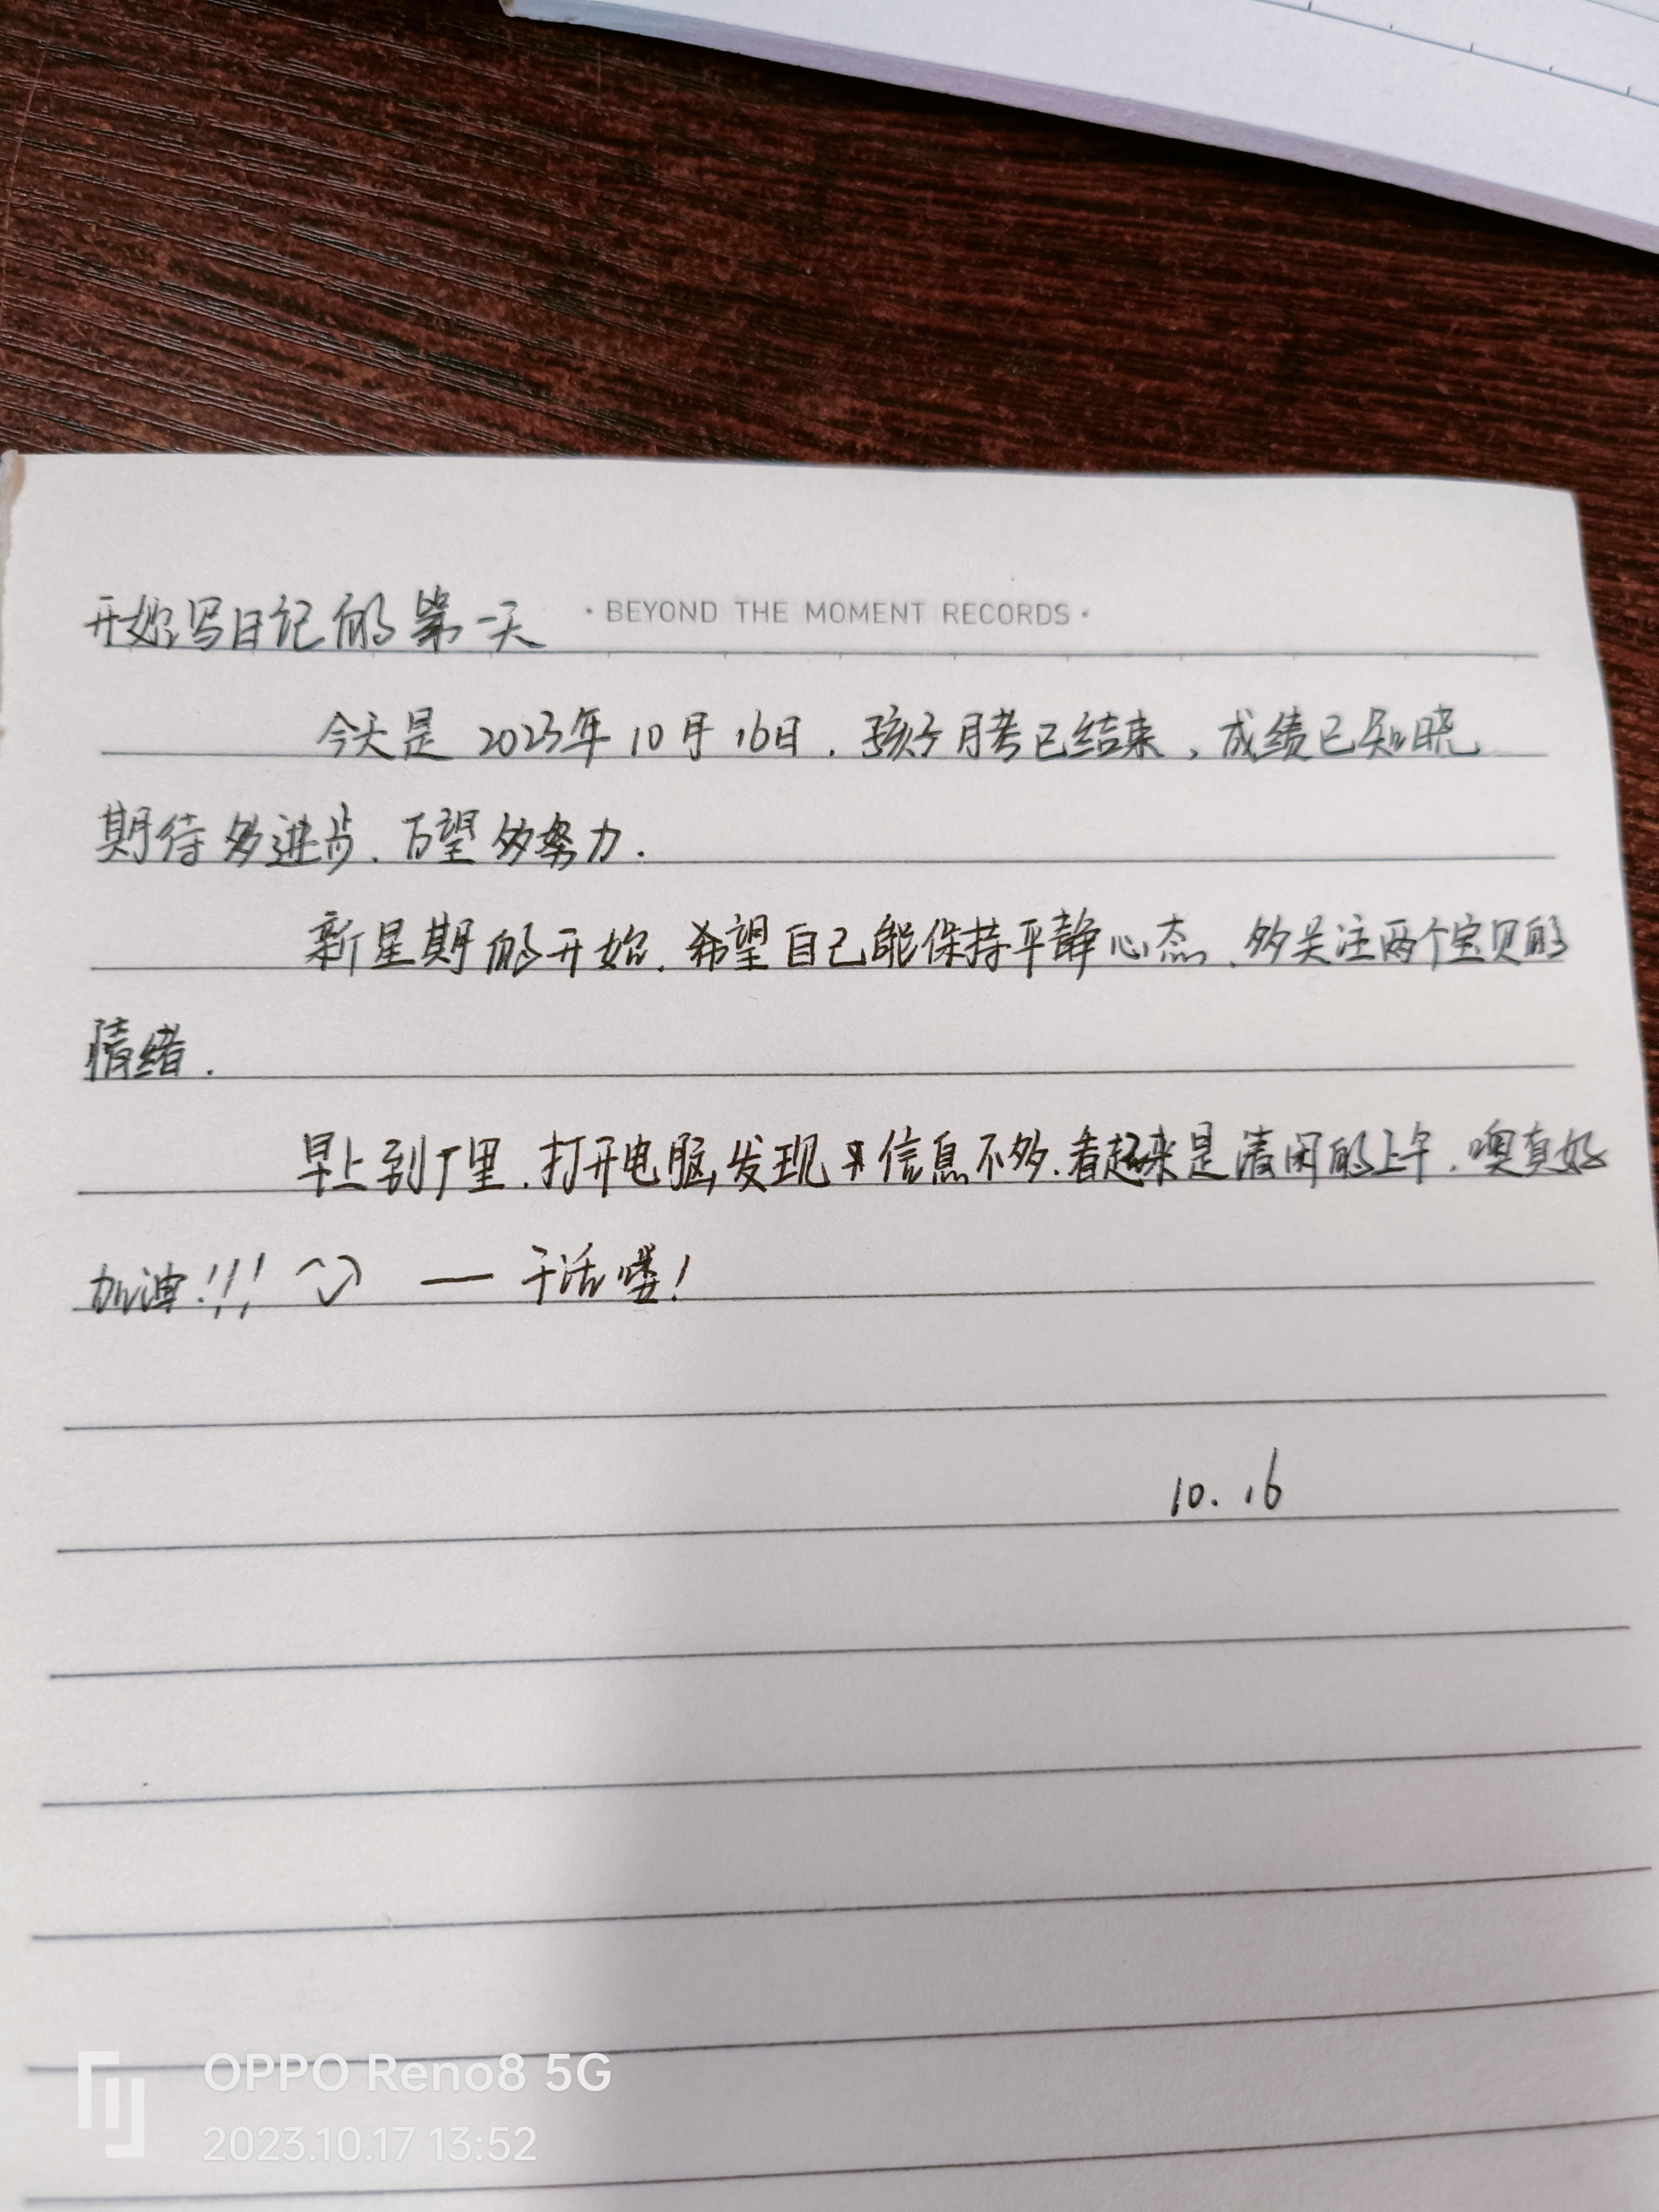 开始写日记的第一天
· BEYOND THE MOMENT RECORDS ·
今天是 2023年 10月 16日. 孩子月考已结束, 成绩已知晓
期待多进步. 百望多努力.
新星期的开始. 希望自己能保持平静心态. 多关注两个宝贝的
情绪.
早上到厂里. 打开电脑, 发现 信息不多. 看起来是清闲的上午. 噢真好
加油!!! — 干活喽!
10. 16
OPPO Reno8 5G
2023.10.17 13:52